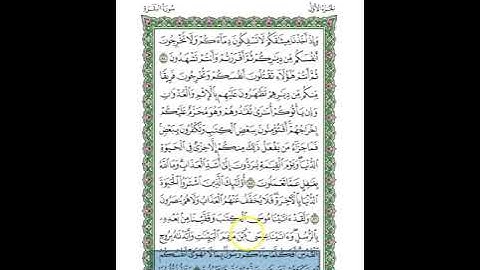 الجزء الأول
سورة البقرة
وَإِذْ أَخَذْنَا مِيثَٰقَكُمْ لَا تَسْفِكُونَ دِمَآءَكُمْ وَلَا تُخْرِجُونَ
أَنفُسَكُم مِّن دِيَٰرِكُمْ ثُمَّ أَقْرَرْتُمْ وَأَنتُمْ تَشْهَدُونَ ٨٤
ثُمَّ أَنتُمْ هَٰٓؤُلَآءِ تَقْتُلُونَ أَنفُسَكُمْ وَتُخْرِجُونَ فَرِيقًا
مِّنكُم مِّن دِيَٰرِهِمْ تَظَٰهَرُونَ عَلَيْهِم بِٱلْإِثْمِ وَٱلْعُدْوَٰنِ
وَإِن يَأْتُوكُمْ أُسَٰرَىٰ تُفَٰدُوهُمْ وَهُوَ مُحَرَّمٌ عَلَيْكُمْ
إِخْرَاجُهُمْ أَفَتُؤْمِنُونَ بِبَعْضِ ٱلْكِتَٰبِ وَتَكْفُرُونَ بِبَعْضٍ
فَمَا جَزَآءُ مَن يَفْعَلُ ذَٰلِكَ مِنكُمْ إِلَّا خِزْىٌ فِى ٱلْحَيَوٰةِ
ٱلدُّنْيَا وَيَوْمَ ٱلْقِيَٰمَةِ يُرَدُّونَ إِلَىٰٓ أَشَدِّ ٱلْعَذَابِ وَمَا ٱللَّهُ
بِغَٰفِلٍ عَمَّا تَعْمَلُونَ ٨٥ أُو۟لَٰٓئِكَ ٱلَّذِينَ ٱشْتَرَوُا۟ ٱلْحَيَوٰةَ
ٱلدُّنْيَا بِٱلْءَاخِرَةِ فَلَا يُخَفَّفُ عَنْهُمُ ٱلْعَذَابُ وَلَا هُمْ يُنصَرُونَ
٨٦ وَلَقَدْ ءَاتَيْنَا مُوسَى ٱلْكِتَٰبَ وَقَفَّيْنَا مِنۢ بَعْدِهِۦ
بِٱلرُّسُلِ وَءَاتَيْنَا عِيسَى ٱبْنَ مَرْيَمَ ٱلْبَيِّنَٰتِ وَأَيَّدْنَٰهُ بِرُوحِ
ٱلْقُدُسِ أَفَكُلَّمَا جَآءَكُمْ رَسُولٌۢ بِمَا لَا تَهْوَىٰٓ أَنفُسُكُمُ